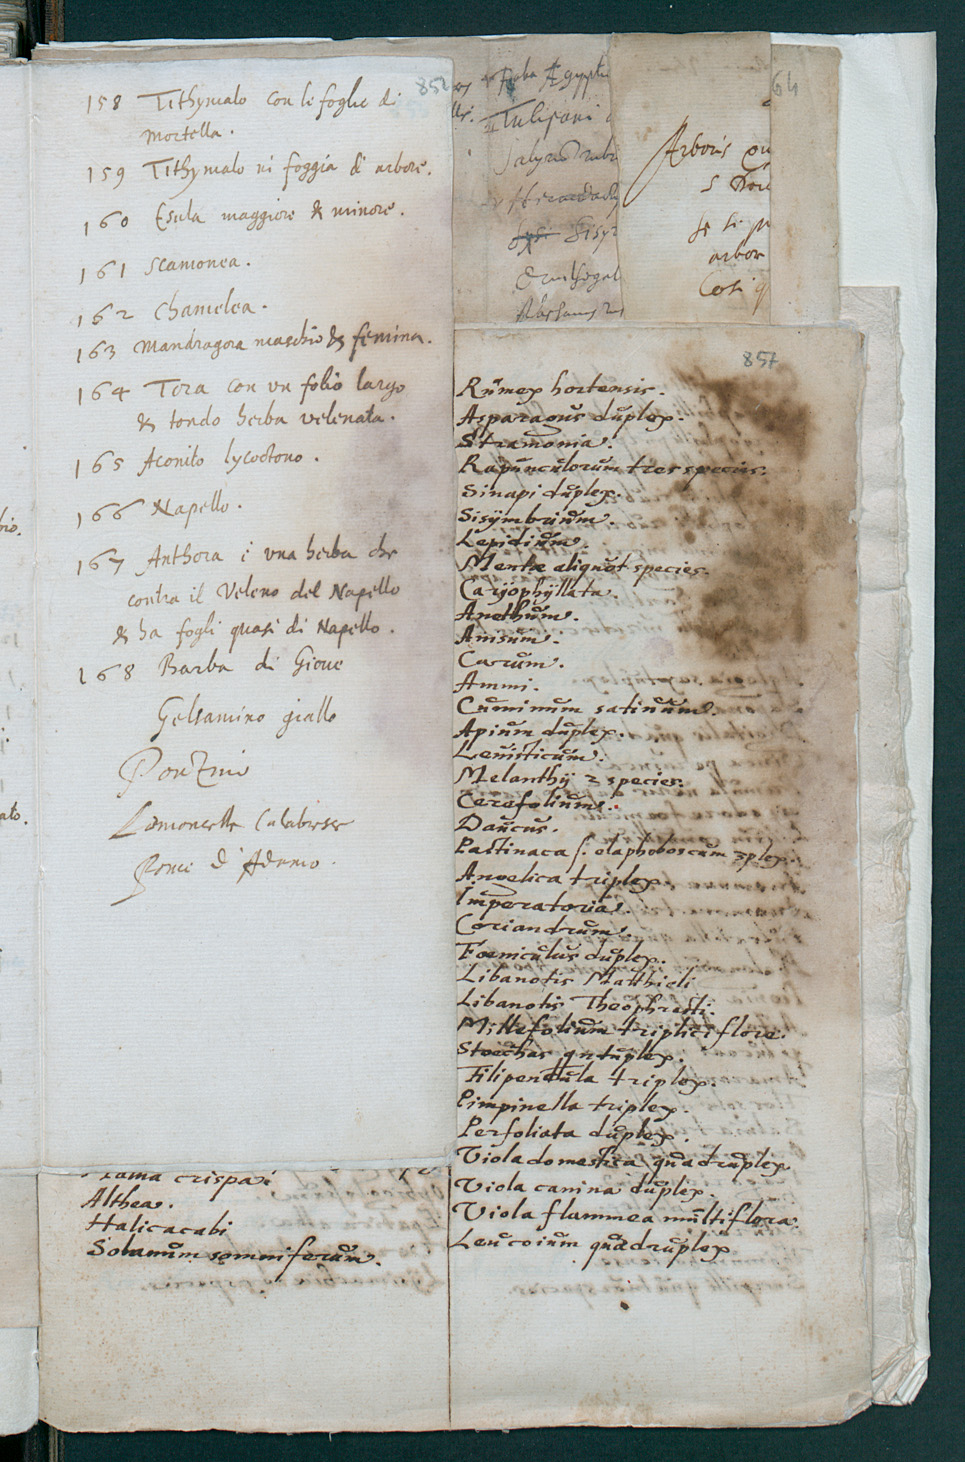 158 Tithymalo con le foglie di
mortella.
159 Tithymalo in foggia di arbore.
160 Esula maggiore & minore.
161 Scamonea.
162 Chamelea.
163 Mandragora maschio & femina.
164 Tora con un folio largo
& tondo herba velenata.
165 Aconito lycoctono.
166 Napello.
167 Anthora è una herba che
contra il Veleno del Napello
& ha fogli quasi di Napello.
168 Barba di Giove
Gelsamino giallo
Ponzino
Limoncelle Calabrese
Pome d'Adamo.
852
crispa
Althea.
Halicacabi
Solanum somniferum.
857
Rumex hortensis.
Asparagus duplex.
Stramonia.
Rapunculorum tres species.
Sinapi duplex.
Sisymbrium.
Lepidium.
Mentæ aliquot species.
Caryophyllata.
Anethum.
Anisum.
Carum.
Ammi.
Cuminum sativum.
Apium duplex.
Levisticum.
Melanthij 2 species.
Cerefolium.
Daucus.
Pastinaca s. elaphoboscum 3plex.
Angelica triplex.
Imperatoria.
Coriandrum.
Foeniculus duplex.
Libanotis Matthieli
Libanotis Theophrasti.
Millefolium triplici flore.
Stoechas quntuplex.
Filipendula triplex.
Pimpinella triplex.
Perfoliata duplex.
Viola domestica quadruplex
Viola canina duplex.
Viola flammea multiflora.
Leucoium quadruplex
Tulipani
Arboris
arbor
64